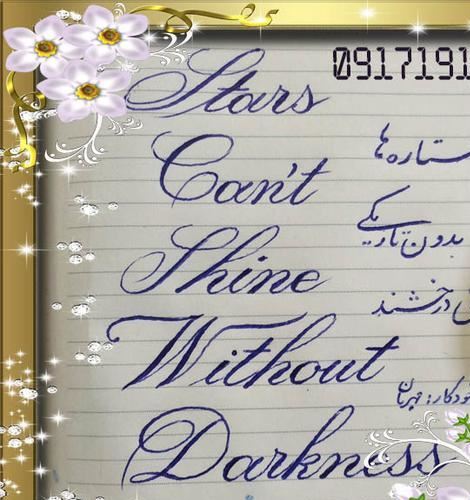 0917191
Stars
Can't
ستاره ها
Shine
بدون تاریکی
Without
درخشند
Darkness
خودکار: مهربان